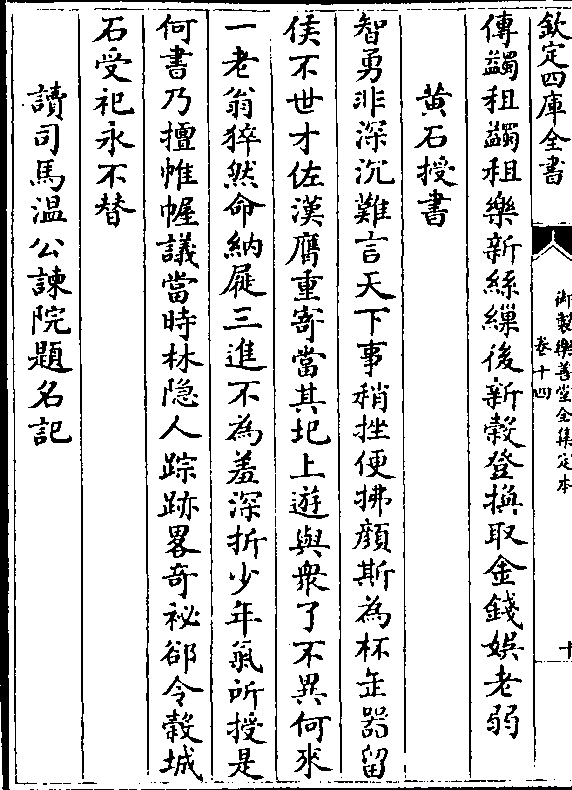 欽定四庫全書
御製樂善堂全集定本
卷十四
十
傳蠲租蠲租樂新絲繅後新穀登換取金錢娛老弱
黄石授書
智勇非深沉難言天下事稍挫便拂顔斯為杯缶器留
侯不世才佐漢膺重寄當其圯上遊與衆了不異何來
一老翁猝然命納屣三進不為羞深折少年氣所授是
何書乃擅帷幄議當時林隠人踪跡畧奇祕郤令穀城
石受祀永不替
讀司馬温公諫院題名記